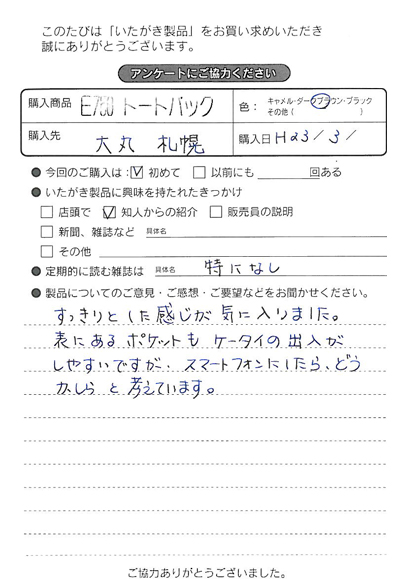 このたびは「いたがき製品」をお買い求めいただき
誠にありがとうございます。
アンケートにご協力ください
購入商品 E730 トートバック 色： キャメル・ダークブラウン・ブラック
その他（ ）
購入先 大丸 札幌 購入日 H23/3/
● 今回のご購入は：☑ 初めて □ 以前にも 回ある
● いたがき製品に興味を持たれたきっかけ
□ 店頭で ☑ 知人からの紹介 □ 販売員の説明
□ 新聞、雑誌など 具体名
□ その他
● 定期的に読む雑誌は 具体名 特になし
● 製品についてのご意見・ご感想・ご要望などをお聞かせください。
すっきりとした感じが気に入りました。
表にあるポケットも ケータイの出入が
しやすいですが、スマートフォンにしたら、どう
かしら と考えています。
ご協力ありがとうございました。